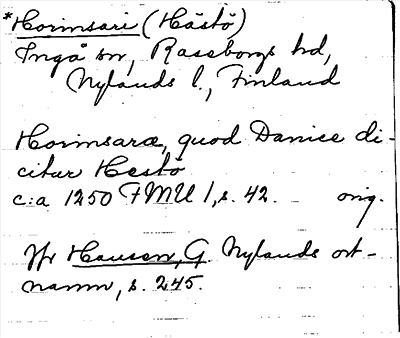 *Horinsari (Hästö)
Ingå sn, Raseborgs hd,
Nylands l., Finland
Horinsaræ, quod Danice di-
citur Hestö
c:a 1250 FMU 1, s. 42. orig.
Jfr Hausen, G. Nylands ort-
namn, s. 245.